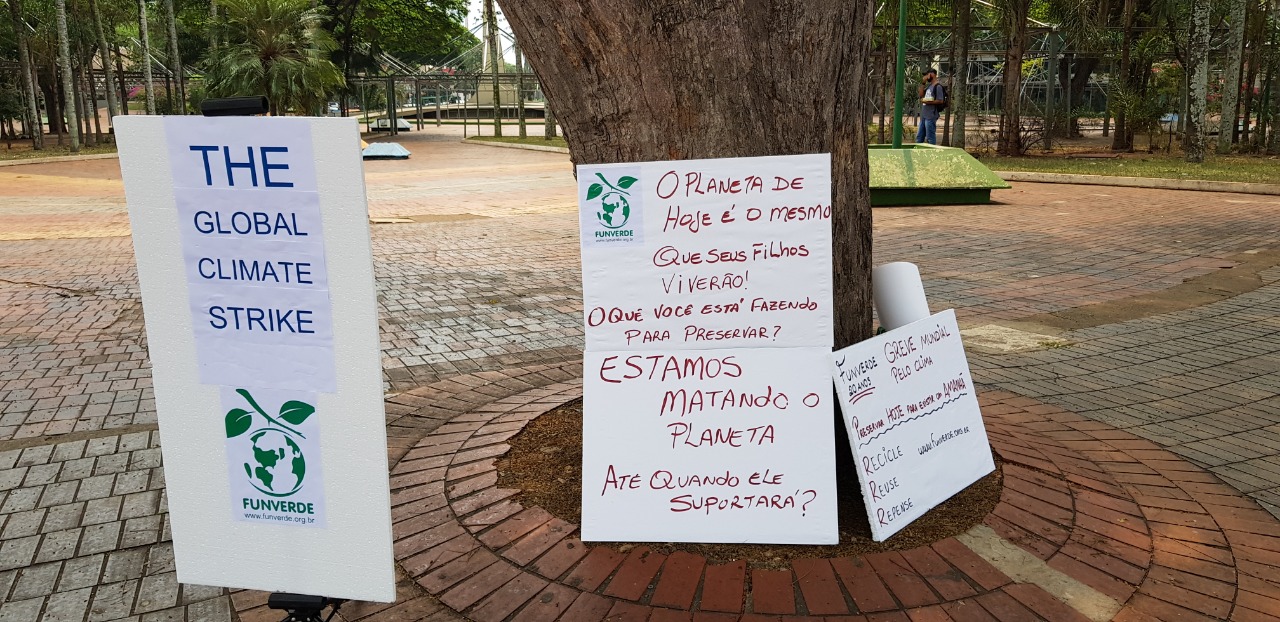 THE
GLOBAL
CLIMATE
STRIKE
FUNVERDE
www.funverde.org.br
FUNVERDE
www.funverde.org.br
O PLANETA DE
HOJE É O MESMO
QUE SEUS FILHOS
VIVERÃO!
O QUÊ VOCÊ ESTÁ FAZENDO
PARA PRESERVAR?
ESTAMOS
MATANDO O
PLANETA
ATÉ QUANDO ELE
SUPORTARÁ?
FUNVERDE
20 ANOS
GREVE MUNDIAL
PELO CLIMA
PRESERVAR HOJE PARA EXISTIR UM AMANHÃ
RECICLE
www.funverde.org.br
REUSE
REPENSE